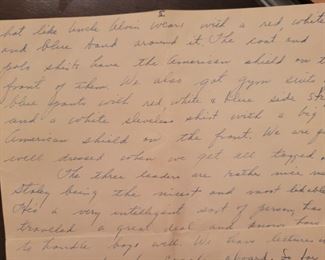 2
hat like Uncle Alvin wears with a red, white
and blue band around it. The coat and
polo shirts have the American shield on t
front of them. We also got gym suits
blue pants with red, white & blue side
and a white sleveless shirt with a big
American shield on the front. We are
well dressed when we get all togged
The three leaders are rather nice
being the nicest and most likeable
He's a very intelligent sort of person, has
traveled a great deal and knows how
to handle boys well. We have lectures
aboard